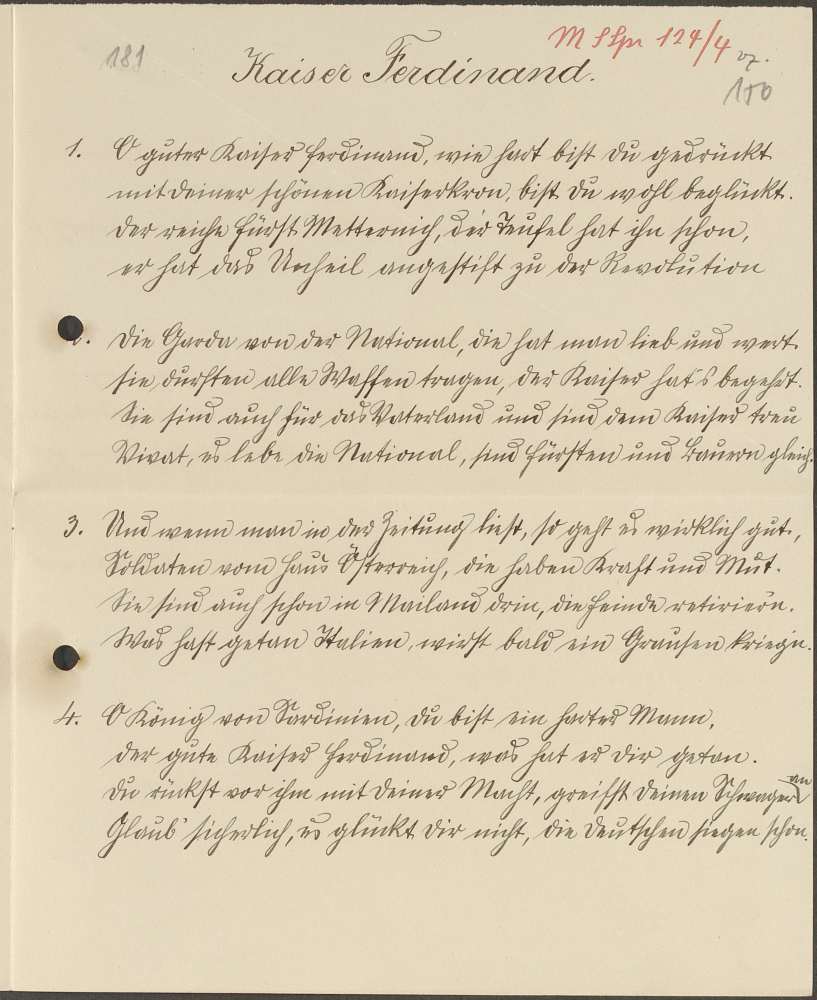 181
M SLpr 124/4
Kaiser Ferdinand.
150
1. O guter Kaiser Ferdinand, wie hart bist du gedrückt
mit deiner schönen Kaiserkron, bist du wohl beglückt.
Der reiche Fürst Metternich, der Teufel hat ihn schon,
er hat das Unheil angestift zu der Revolution
2. Die Garda von der National, die hat man lieb und wert.
sie durften alle Waffen tragen, der Kaiser hat's begehrt.
Sie sind auch für das Vaterland und sind dem Kaiser treu
Vivat, es lebe die National, sind Fürsten und Bauern gleich.
3. Und wenn man in der Zeitung liest, so geht es wirklich gut,
Soldaten vom Haus Österreich, die haben Kraft und Mut.
Sie sind auch schon in Mailand drin, die Feinde retiriern.
Was hast getan Italien, wirst bald ein Grausen krieg'n.
4. O König von Sardinien, du bist ein harter Mann,
der gute Kaiser Ferdinand, was hat er dir getan.
Du rückst vor ihm mit deiner Macht, greifst deinen Schwager an
Glaub' sicherlich, es glückt dir nicht, die Deutschen siegen schon.